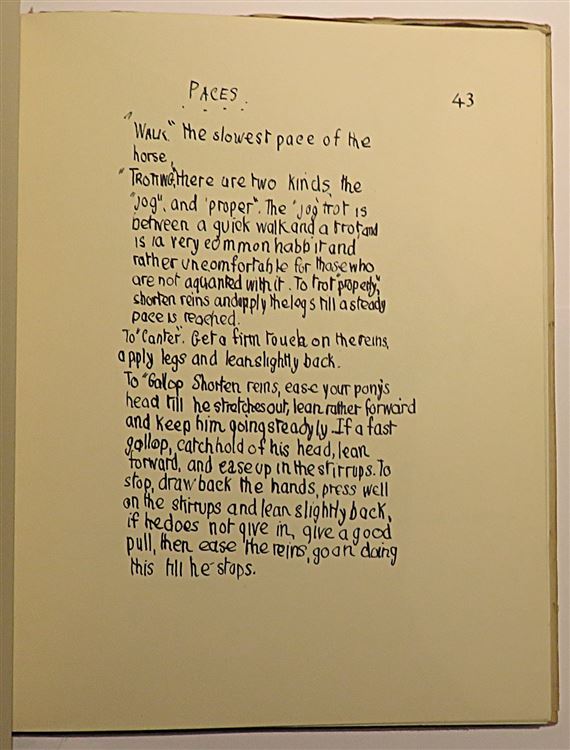 PACES.
43
"WALK" the slowest pace of the
horse,
"TROTING", there are two kinds, the
"jog", and 'proper". The 'jog' trot is
between a quick walk and a trot and
is a very common habbit and
rather uncomfortable for those who
are not aquanted with it. To trot "properly",
shorten reins and apply the legs till a steady
pace is reached.
To "Canter". Get a firm touch on the reins,
apply legs and lean slightly back.
To "Gallop Shorten reins, ease your pony's
head till he stretches out, lean rather forward
and keep him going steadyly. If a fast
gallop, catch hold of his head, lean
forward, and ease up in the stirrups. To
stop, draw back the hands, press well
on the stirrups and lean slightly back,
if he does not give in, give a good
pull, then ease the reins, go on doing
this till he stops.